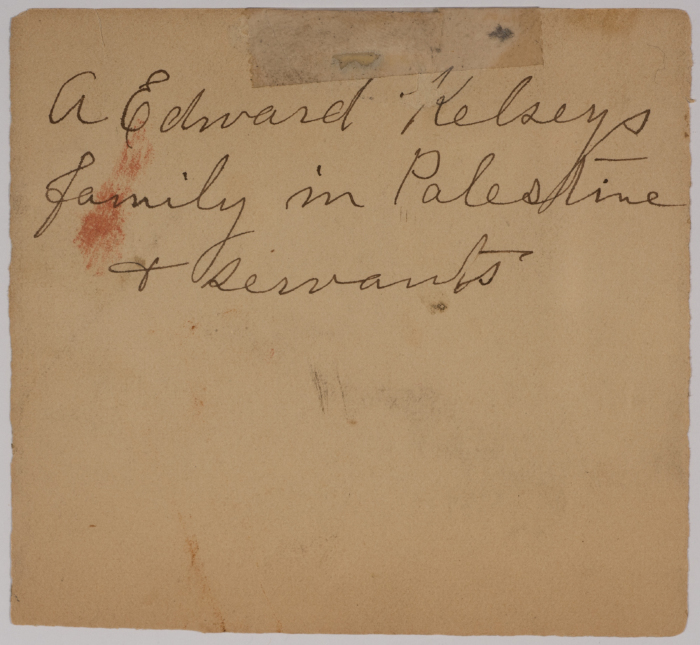 A Edward Kelseys
family in Palestine
+ servants